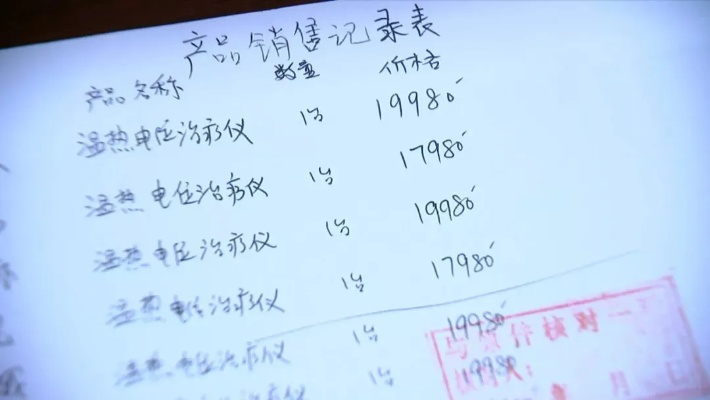 产品销售记录表
产品名称 数量 价格
温热电位治疗仪 1台 19980
温热电位治疗仪 1台 17980
温热电位治疗仪 1台 19980
温热电位治疗仪 1台 17980
温热电位治疗仪 1台 19980
1台 19980
与原件核对一
年 月 日